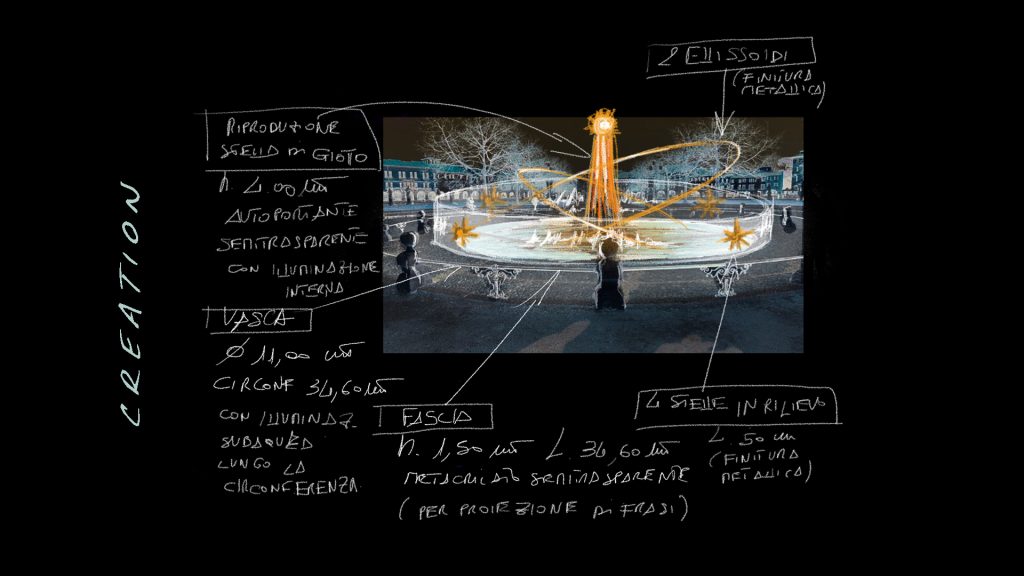 CREATION
RIPRODUZIONE
STELLA DI GIOTTO
h. 4.00 mt
AUTOPORTANTE
SEMITRASPARENTE
CON ILLUMINAZIONE
INTERNA
VASCA
Ø 11,00 mt
CIRCONF 34,60 mt
CON ILLUMINAZ.
SUBAQUEA
LUNGO LA
CIRCONFERENZA
2 ELLISSOIDI
(FINITURA
METALLICA)
FASCIA
h. 1,50 mt L. 34,60 mt
METACRILATO SEMITRASPARENTE
(PER PROIEZIONE DI FRASI)
4 STELLE IN RILIEVO
L. 50 cm
(FINITURA
METALLICA)